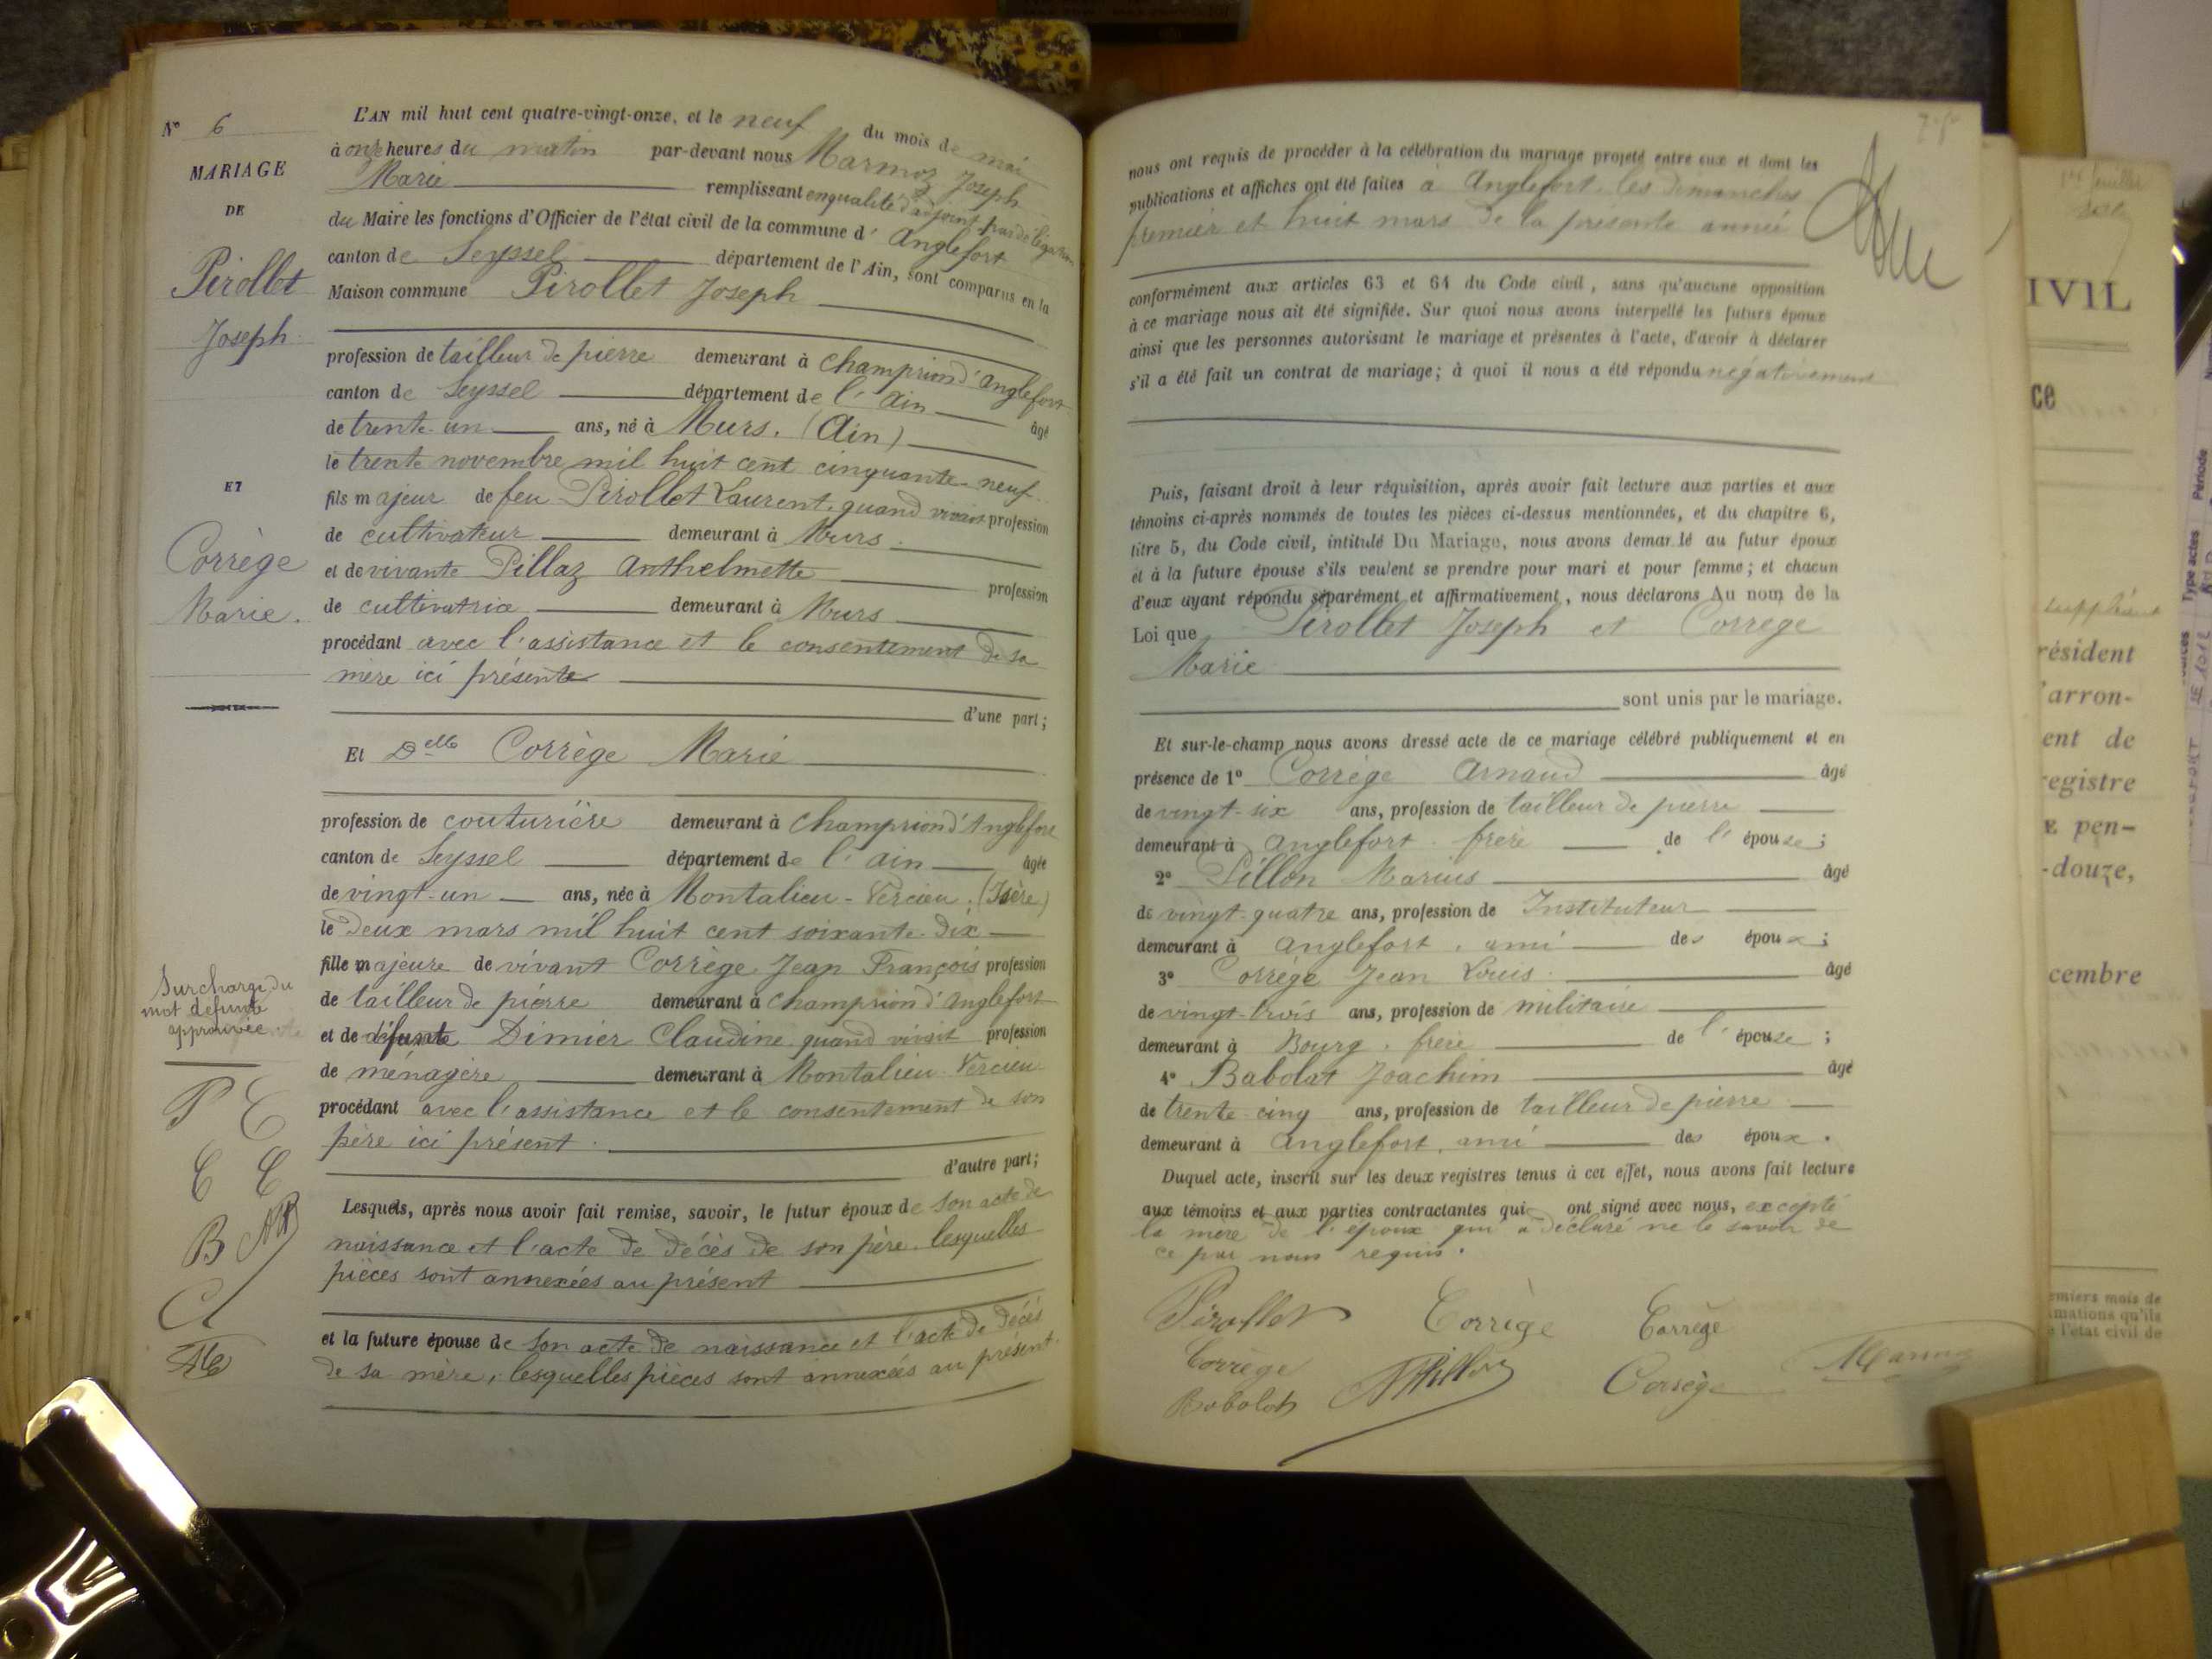 N° 6
MARIAGE
DE
Pirollet
Joseph
ET
Corrège
Marie.
Surcharge du
mot défunte
approuvée
P C
C C
B
L'AN mil huit cent quatre-vingt-onze, et le neuf du mois de mai
à onze heures du matin par-devant nous Marmoz Joseph
Marie remplissant en qualité d'adjoint par délégation
du Maire les fonctions d'Officier de l'état civil de la commune d' Anglefort
canton de Seyssel département de l'Ain, sont comparus en la
Maison commune Pirollet Joseph
profession de tailleur de pierre demeurant à Champrion d'Anglefort
canton de Seyssel département de l'Ain âgé
de trente-un ans, né à Murs. (Ain)
le trente novembre mil huit cent cinquante-neuf
fils majeur de feu Pirollet Laurent, quand vivait profession
de cultivateur demeurant à Murs.
et de vivante Pillaz Anthelmette profession
de cultivatrice demeurant à Murs
procédant avec l'assistance et le consentement de sa
mère ici présente
d'une part;
Et Delle Corrège Marie
profession de couturière demeurant à Champrion d'Anglefort
canton de Seyssel département de l'Ain âgée
de vingt-un ans, née à Montalieu-Vercieu. (Isère)
le deux mars mil huit cent soixante-dix
fille majeure de vivant Corrège Jean François profession
de tailleur de pierre demeurant à Champrion d'Anglefort
et de défunte Dimier Claudine quand vivait profession
de ménagère demeurant à Montalieu-Vercieu
procédant avec l'assistance et le consentement de son
père ici présent.
d'autre part;
Lesquels, après nous avoir fait remise, savoir, le futur époux de son acte de
naissance et l'acte de décès de son père. lesquelles
pièces sont annexées au présent
et la future épouse de son acte de naissance et l'acte de décès
de sa mère, lesquelles pièces sont annexées au présent.
nous ont requis de procéder à la célébration du mariage projeté entre eux et dont les
publications et affiches ont été faites à Anglefort. les Dimanches
premier et huit mars de la présente année
conformément aux articles 63 et 64 du Code civil, sans qu'aucune opposition
à ce mariage nous ait été signifiée. Sur quoi nous avons interpellé les futurs époux
ainsi que les personnes autorisant le mariage et présentes à l'acte, d'avoir à déclarer
s'il a été fait un contrat de mariage; à quoi il nous a été répondu négativement
Puis, faisant droit à leur réquisition, après avoir fait lecture aux parties et aux
témoins ci-après nommés de toutes les pièces ci-dessus mentionnées, et du chapitre 6,
titre 5, du Code civil, intitulé Du Mariage, nous avons demandé au futur époux
et à la future épouse s'ils veulent se prendre pour mari et pour femme; et chacun
d'eux ayant répondu séparément et affirmativement, nous déclarons Au nom de la
Loi que Pirollet Joseph et Corrège
Marie
sont unis par le mariage.
Et sur-le-champ nous avons dressé acte de ce mariage célébré publiquement et en
présence de 1° Corrège Arnaud âgé
de vingt-six ans, profession de tailleur de pierre
demeurant à Anglefort. frère de l'épouse;
2° Pillon Marius âgé
de vingt-quatre ans, profession de Instituteur
demeurant à Anglefort, ami des époux;
3° Corrège Jean Louis âgé
de vingt-trois ans, profession de militaire
demeurant à Bourg. frère de l'épouse;
4° Babolat Joachim âgé
de trente-cinq ans, profession de tailleur de pierre
demeurant à Anglefort. ami des époux.
Duquel acte, inscrit sur les deux registres tenus à cet effet, nous avons fait lecture
aux témoins et aux parties contractantes qui ont signé avec nous, excepté
la mère de l'époux qui a déclaré ne le savoir de
ce par nous requis.
Pirollet Corrège Corrège
Corrège Pillon Corrège Marmoz
Babolat
IVIL
ce
résident
'arron-
ent de
registre
E pen-
-douze,
cembre
emiers mois de
mations qu'ils
e l'état civil de
Type actes Période